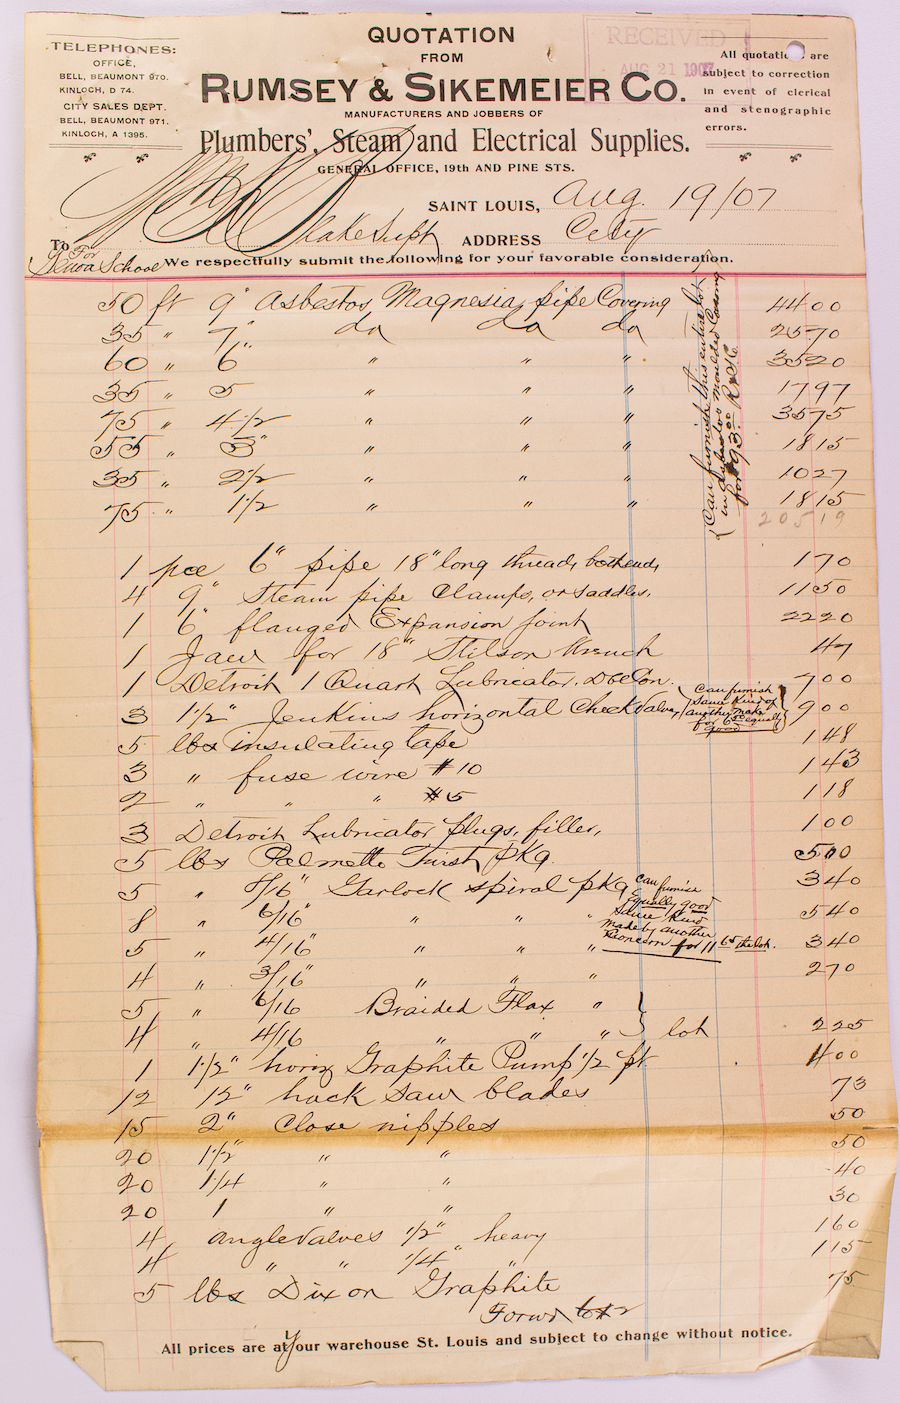 TELEPHONES:
OFFICE,
BELL, BEAUMONT 970.
KINLOCH, D 74.
CITY SALES DEPT.
BELL, BEAUMONT 971.
KINLOCH, A 1395.
QUOTATION
FROM
RUMSEY & SIKEMEIER CO.
MANUFACTURERS AND JOBBERS OF
Plumbers', Steam and Electrical Supplies.
GENERAL OFFICE, 19th AND PINE STS.
RECEIVED
AUG 21 1907
All quotations are
subject to correction
in event of clerical
and stenographic
errors.
SAINT LOUIS, Aug. 19/07
To Blake Supt ADDRESS City
For
School We respectfully submit the following for your favorable consideration.
50 ft 9" Asbestos Magnesia pipe Covering 4400
35 " 7" do do do 2570
60 " 6" " " " 3520
35 " 5 " " " 1797
75 " 4 1/2 " " " 3575
55 " 3" " " " 1815
35 " 2 1/2 " " " 1027
75 " 1 1/2 " " " 1815
20519
Can furnish this entire lot
in Asbestos moulded Covering
for $93.00 R&S Co.
1 pce 6" pipe 18" long thread both ends 170
4 9" Steam pipe Clamps, or saddles, 1150
1 6" flanged Expansion joint 2220
1 Jaw for 18" Stilson Wrench 47
1 Detroit 1 Quart Lubricator. Dbl Con. 700
3 1 1/2" Jenkins horizontal Check Valves 900
Can furnish
same kind of
another make
for 6 equally
good
5 lbs insulating tape 148
3 " fuse wire #10 143
2 " " " #5 118
3 Detroit Lubricator plugs, filler, 100
5 lbs Palmetto Twist pkg. 500
5 " 5/16" Garlock spiral pkg 340
8 " 6/16" " " " 540
5 " 4/16" " " " 340
4 " 3/16" " " " 270
Can furnish
equally good
same kind
made by another
concern for 11 65 the lot.
5 " 6/16 Braided Flax "
4 " 4/16 " " " lot 225
1 1 1/2" horiz Graphite Pump 1/2 pt. 400
12 12" hack saw blades 73
15 2" Close nipples 50
20 1 1/2" " " 50
20 1 1/4 " " 40
20 1 " " 30
4 angle valves 1/2" heavy 160
4 " " 1/4" " 115
5 lbs Dixon Graphite 75
Forwd to #2
All prices are at your warehouse St. Louis and subject to change without notice.